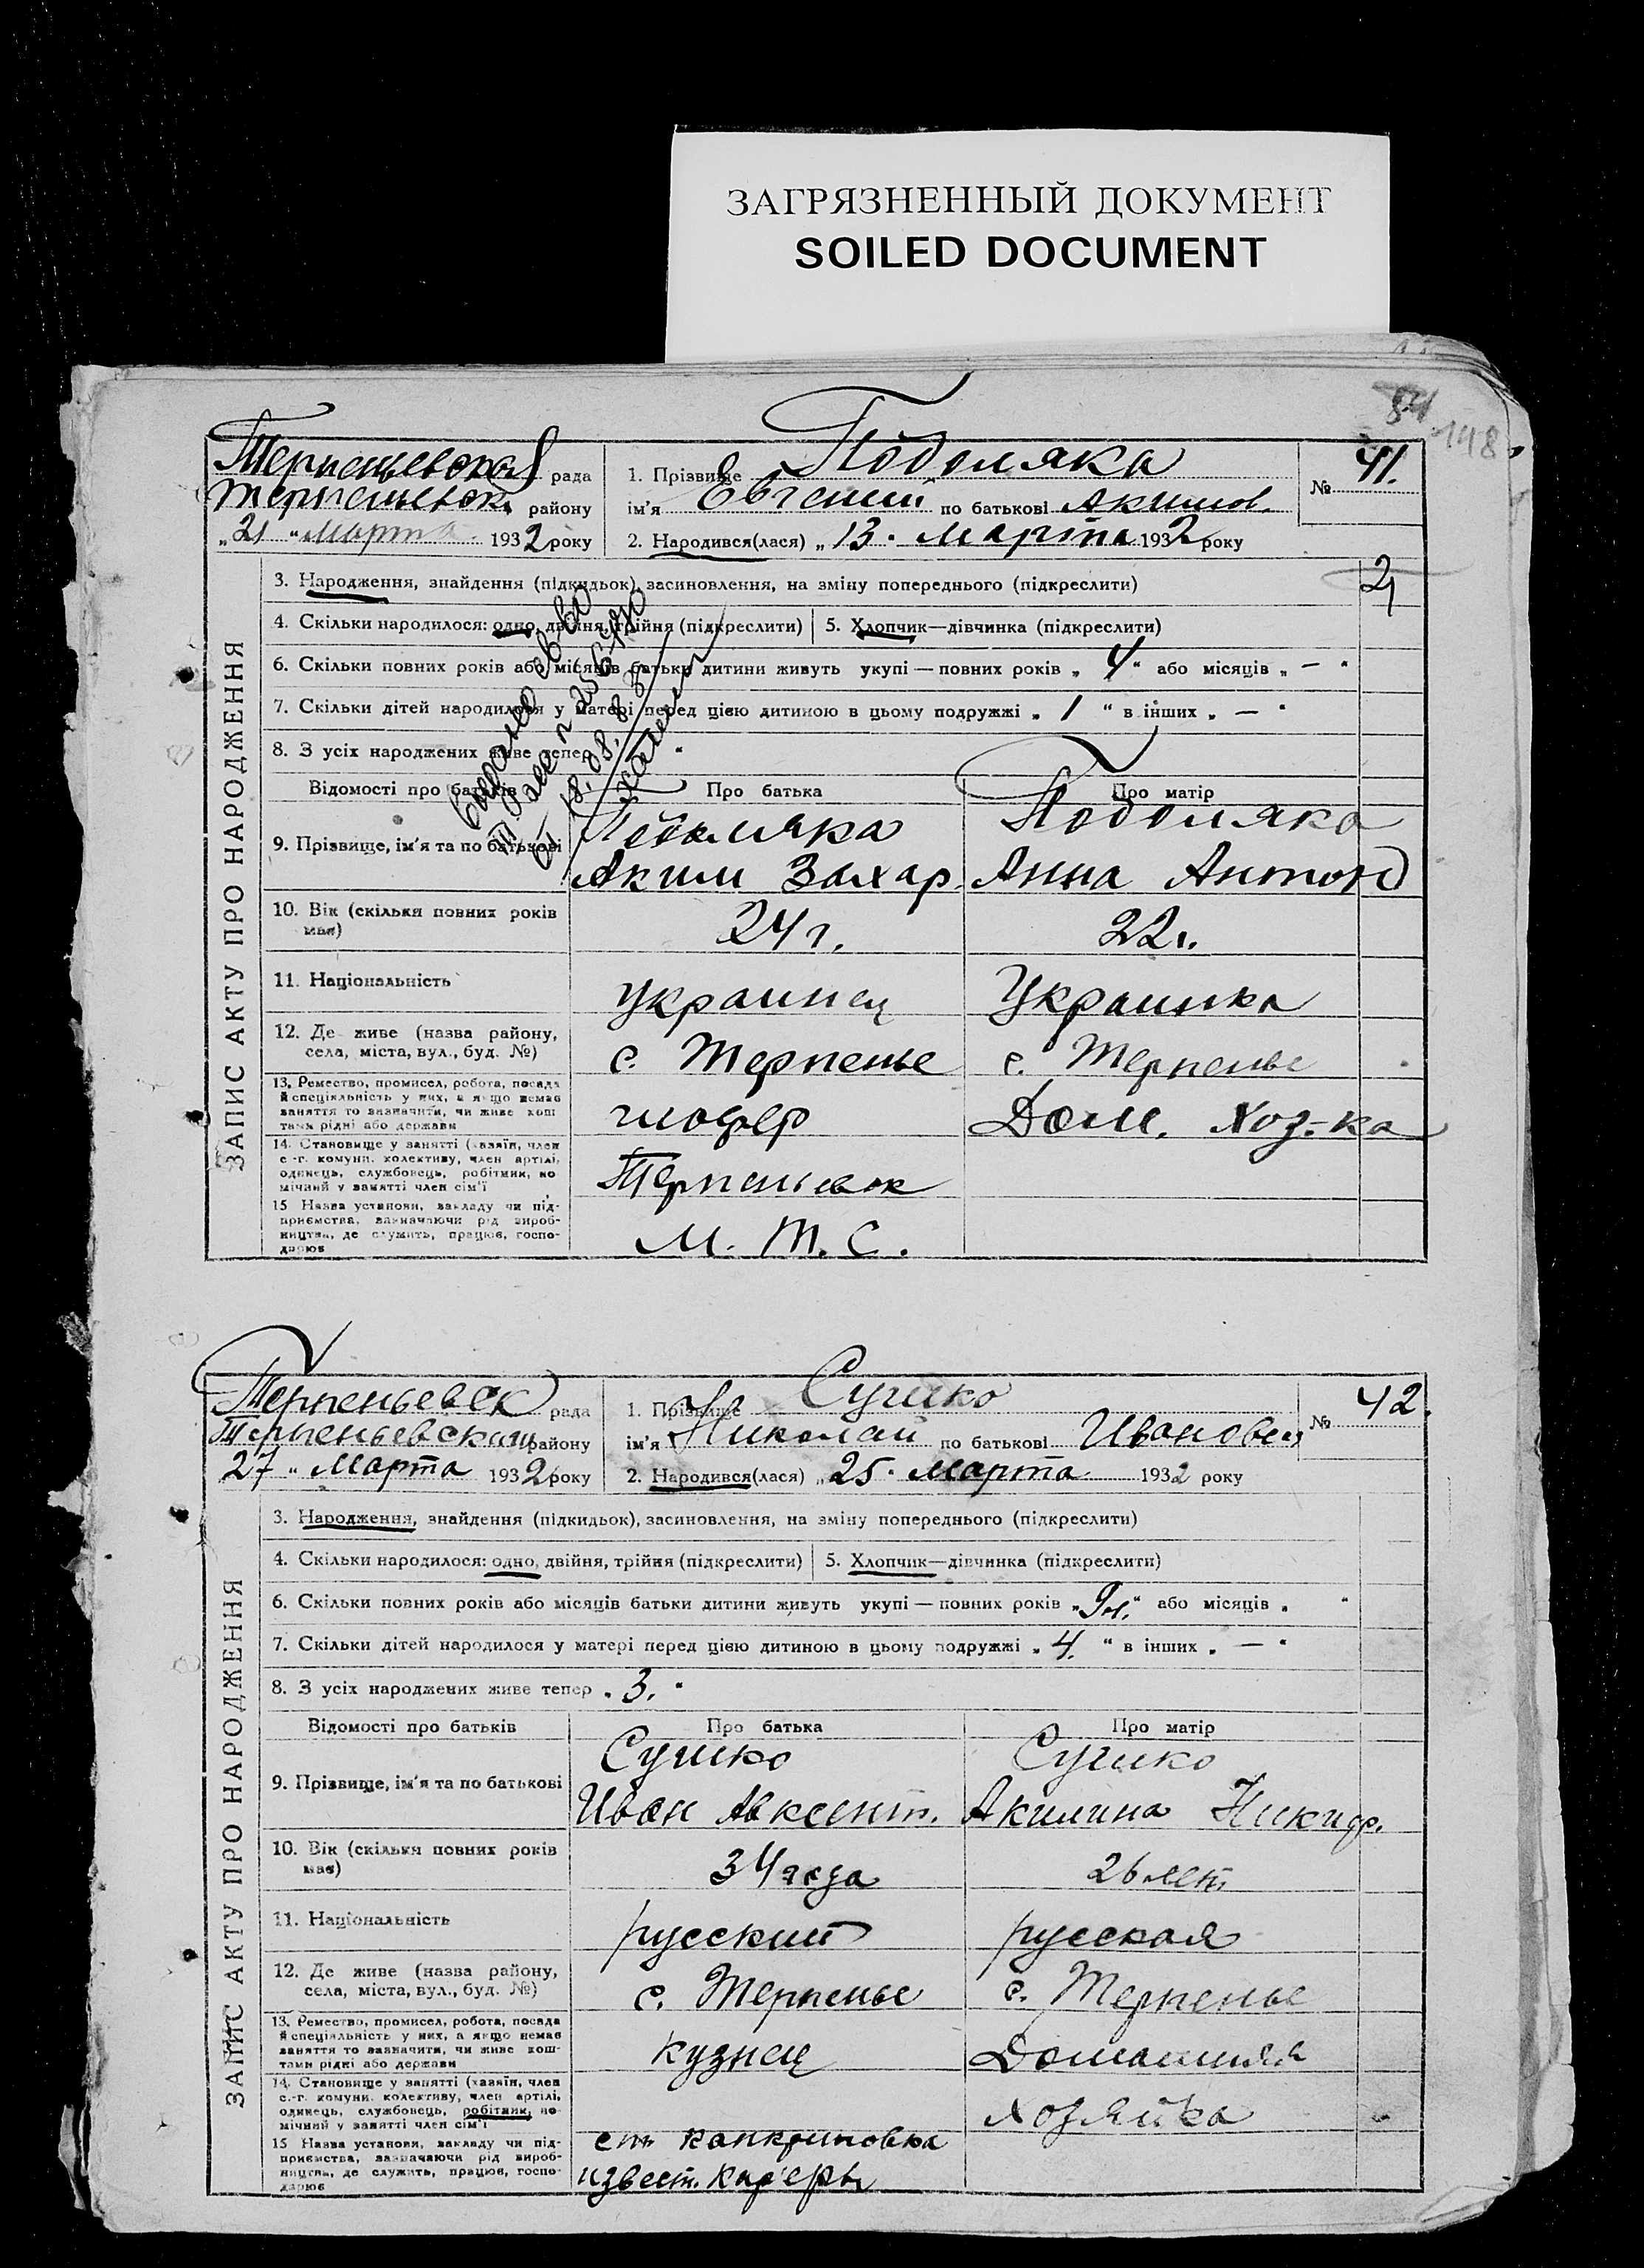 ЗАГРЯЗНЕННЫЙ ДОКУМЕНТ
SOILED DOCUMENT
84
148
Терпеньевская рада
Терпеньевск. району
„21 “ Марта 1932 року
1. Прізвище Подоляка
ім’я Евгений по батькові Акимов.
2. Народився(лася) „13. Марта 1932 року
№ 41.
ЗАПИС АКТУ ПРО НАРОДЖЕННЯ
3. Народження, знайдення (підкидьок), засиновлення, на зміну попереднього (підкреслити) 2
4. Скільки народилося: одно, двійня, трійня (підкреслити) 5. Хлопчик—дівчинка (підкреслити)
6. Скільки повних років або місяців батьки дитини живуть укупі — повних років „ 4 “ або місяців „ — “
7. Скільки дітей народилося у матері перед цією дитиною в цьому подружжі „ 1 “ в інших „ — “
8. З усіх народжених живе тепер
Відомості про батьків Про батька Про матір
9. Прізвище, ім’я та по батькові
Подоляка
Аким Захар.
Подоляка
Анна Антон
10. Вік (скільки повних років має) 24 г. 22 г.
11. Національність украинец Украинка
12. Де живе (назва району, села, міста, вул., буд. №) с. Терпенье с. Терпенье
13. Ремество, промисел, робота, посада
й спеціяльність у них, а якщо немає
заняття то зазначити, чи живе кош
тами рідні або держави
шофер Дом. Хоз-ка
14. Становище у занятті (хазяїн, член
с.-г. комуни. колективу, член артілі,
одинець, службовець, робітник, по
мічний у занятті член сім’ї
Терпеньевск
15 Назва установи, закладу чи під-
приємства, зазначаючи рід вироб-
ництва, де служить, працює, госпо-
дарює
М. Т. С.
Терпеньевск рада
Терпеньевский району
27 “ Марта 1932 року
1. Прізвище Сушко
ім’я Николай по батькові Иванович
2. Народився(лася) „25. Марта 1932 року
№ 42.
ЗАПИС АКТУ ПРО НАРОДЖЕННЯ
3. Народження, знайдення (підкидьок), засиновлення, на зміну попереднього (підкреслити)
4. Скільки народилося: одно, двійня, трійня (підкреслити) 5. Хлопчик—дівчинка (підкреслити)
6. Скільки повних років або місяців батьки дитини живуть укупі — повних років „9 л.“ або місяців „ “
7. Скільки дітей народилося у матері перед цією дитиною в цьому подружжі „ 4. “ в інших „ — “
8. З усіх народжених живе тепер „ 3. “
Відомості про батьків Про батька Про матір
9. Прізвище, ім’я та по батькові
Сушко
Иван Авксент.
Сушко
Акилина Никиф.
10. Вік (скільки повних років має) 34 года 26 лет
11. Національність русский русская
12. Де живе (назва району, села, міста, вул., буд. №) с. Терпенье с. Терпенье
13. Ремество, промисел, робота, посада
й спеціяльність у них, а якщо немає
заняття то зазначити, чи живе кош-
тами рідні або держави
кузнец Домашняя
14. Становище у занятті (хазяїн, член
с.-г. комуни. колективу, член артілі,
одинець, службовець, робітник, по
мічний у занятті член сім’ї
хозяйка
15 Назва установи, закладу чи під-
приємства, зазначаючи рід вироб-
ництва, де служить, працює, госпо-
дарює
ст. Канкриновка
извест. карьеры